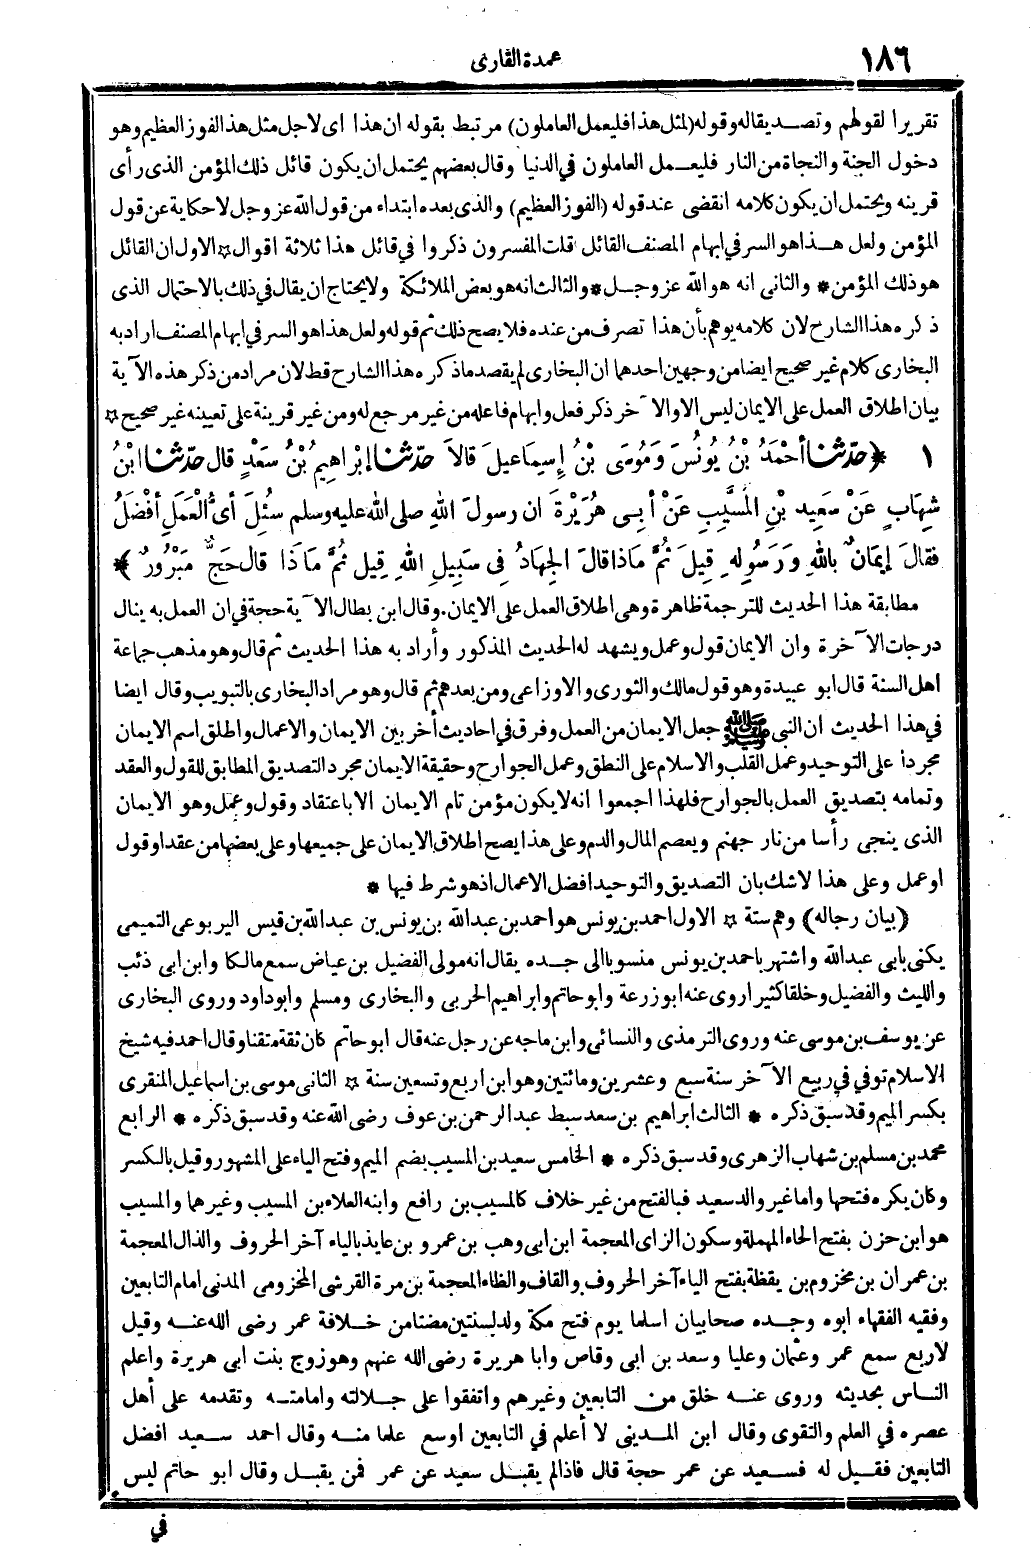 ١٨٦
عمدة القارى
تقريرا لقولهم وتصديقاله وقوله (لمثل هذا فليعمل العاملون) مرتبط بقوله ان هذا اى لاجل مثل هذ الفوز العظيم وهو
دخول الجنة والنجاة من النار فليعمل العاملون في الدنيا وقال بعضهم يحتمل ان يكون قائل ذلك المؤمن الذى رأى
قرينه ويحتمل ان يكون كلامه انقضى عند قوله (الفوز العظيم) والذى بعده ابتداء من قول الله عز وجل لا حكاية عن قول
المؤمن ولعل هذا هو السر في ابهام المصنف القائل قلت المفسرون ذكروا في قائل هذا ثلاثة اقوال ☆ الاول ان القائل
هو ذلك المؤمن * والثانى انه هو الله عز وجل * والثالث انه هو بعض الملائكة ولا يحتاج ان يقال في ذلك بالاحتمال الذى
ذكره هذا الشارح لان كلامه يوهم بأن هذا تصرف من عنده فلا يصح ذلك ثم قوله ولعل هذا هو السر في ابهام المصنف اراد به
البخارى كلام غير صحيح ايضا من وجهين احدهما ان البخارى لم يقصد ما ذكره هذا الشارح قط لان مراد من ذكر هذه الآية
بيان اطلاق العمل على الايمان ليس الا والآخر ذكر فعل وابهام فاعله من غير مرجع له ومن غير قرينة على تعيينه غير صحيح ☆
١ ﴿ حدّثنا أحْمَدُ بْنُ يُونُسَ وَمُوسَى بْنُ إِسماعيلَ قالاَ حدّثنا إبْراهِيمُ بْنُ سَعْدٍ قال حدّثنا ابْنُ
شِهَابٍ عَنْ سَعِيدِ بْنِ المُسَيَّبِ عَنْ أبِى هُرَيْرَةَ ان رسولَ اللهِ صلى الله عليه وسلم سُئِلَ أىُّ الْعَمَلِ أفْضَلُ
فقالَ إيمَانٌ باللهِ وَرَسُولِهِ قِيلَ ثُمَّ مَاذا قالَ الجِهادُ فِى سَبِيلِ اللهِ قِيل ثُمَّ مَاذَا قال حَجٌّ مَبْرُورٌ ﴾
مطابقة هذا الحديث للترجمة ظاهرة وهى اطلاق العمل على الايمان. وقال ابن بطال الآية حجة في ان العمل به ينال
درجات الآخرة وان الايمان قول وعمل ويشهد له الحديث المذكور وأراد به هذا الحديث ثم قال وهو مذهب جماعة
اهل السنة قال ابو عبيدة وهو قول مالك والثورى والاوزاعى ومن بعدهم ثم قال وهو مراد البخارى بالتبويب وقال ايضا
في هذا الحديث ان النبى ﷺ جعل الايمان من العمل وفرق في احاديث أخر بين الايمان والاعمال واطلق اسم الايمان
مجردا على التوحيد وعمل القلب والاسلام على النطق وعمل الجوارح وحقيقة الايمان مجرد التصديق المطابق للقول والعقد
وتمامه بتصديق العمل بالجوارح فلهذا اجمعوا انه لا يكون مؤمن تام الايمان الا باعتقاد وقول وعمل وهو الايمان
الذى ينجى رأسا من نار جهنم ويعصم المال والدم وعلى هذا يصح اطلاق الايمان على جميعها وعلى بعضها من عقد او قول
او عمل وعلى هذا لا شك بان التصديق والتوحيد افضل الاعمال اذ هو شرط فيها *
(بيان رجاله) وهم ستة ☆ الاول احمد بن يونس هو احمد بن عبد الله بن يونس بن عبد الله بن قيس اليربوعى التميمى
يكنى بابى عبد الله واشتهر باحمد بن يونس منسوبا الى جده يقال انه مولى الفضيل بن عياض سمع مالكا وابن ابى ذئب
والليث والفضيل وخلقا كثيرا روى عنه ابو زرعة وابو حاتم وابراهيم الحربى والبخارى ومسلم وابو داود وروى البخارى
عن يوسف بن موسى عنه وروى الترمذى والنسائى وابن ماجه عن رجل عنه قال ابو حاتم كان ثقة متقنا وقال احمد فيه شيخ
الاسلام توفي في ربيع الآخر سنة سبع وعشرين ومائتين وهو ابن اربع وتسعين سنة ☆ الثانى موسى بن اسماعيل المنقرى
بكسر الميم وقد سبق ذكره * الثالث ابراهيم بن سعد سبط عبد الرحمن بن عوف رضى الله عنه وقد سبق ذكره * الرابع
محمد بن مسلم بن شهاب الزهرى وقد سبق ذكره * الخامس سعيد بن المسيب بضم الميم وفتح الياء على المشهور وقيل بالكسر
وكان يكره فتحها واما غير والد سعيد فبالفتح من غير خلاف كالمسيب بن رافع وابنه العلاء بن المسيب وغيرهما والمسيب
هو ابن حزن بفتح الحاء المهملة وسكون الزاى المعجمة ابن ابى وهب بن عمرو بن عايذ بالياء آخر الحروف والذال المعجمة
بن عمران بن مخزوم بن يقظة بفتح الياء آخر الحروف والقاف والظاء المعجمة بن مرة القرشى المخزومى المدنى امام التابعين
وفقيه الفقهاء ابوه وجده صحابيان اسلما يوم فتح مكة ولد لسنتين مضتا من خلافة عمر رضى الله عنه وقيل
لاربع سمع عمر وعثمان وعليا وسعد بن ابى وقاص وابا هريرة رضى الله عنهم وهو زوج بنت ابى هريرة واعلم
الناس بحديثه وروى عنه خلق من التابعين وغيرهم واتفقوا على جلالته وامامته وتقدمه على أهل
عصره في العلم والتقوى وقال ابن المدينى لا أعلم في التابعين اوسع علما منه وقال احمد سعيد افضل
التابعين فقيل له فسعيد عن عمر حجة قال فاذا لم يقبل سعيد عن عمر فمن يقبل وقال ابو حاتم ليس
في